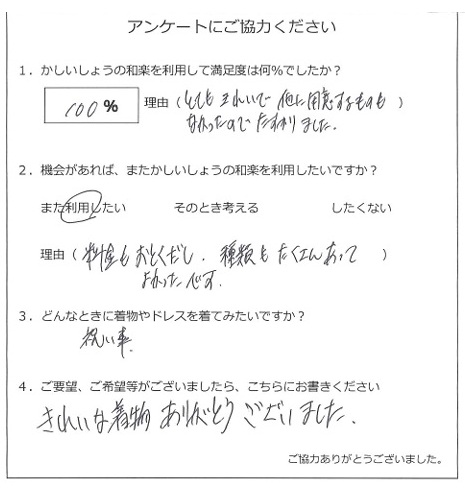 アンケートにご協力ください
1．かしいしょうの和楽を利用して満足度は何%でしたか？
100 %　理由（とてもきれいで 他に用意するものも）
なかったので たすかりました．
2．機会があれば、またかしいしょうの和楽を利用したいですか？
また利用したい　そのとき考える　したくない
理由（料金もおとくだし．種類もたくさんあって）
よかったです
3．どんなときに着物やドレスを着てみたいですか？
祝い事．
4．ご要望、ご希望等がございましたら、こちらにお書きください
きれいな着物 ありがとう ございました．
ご協力ありがとうございました。